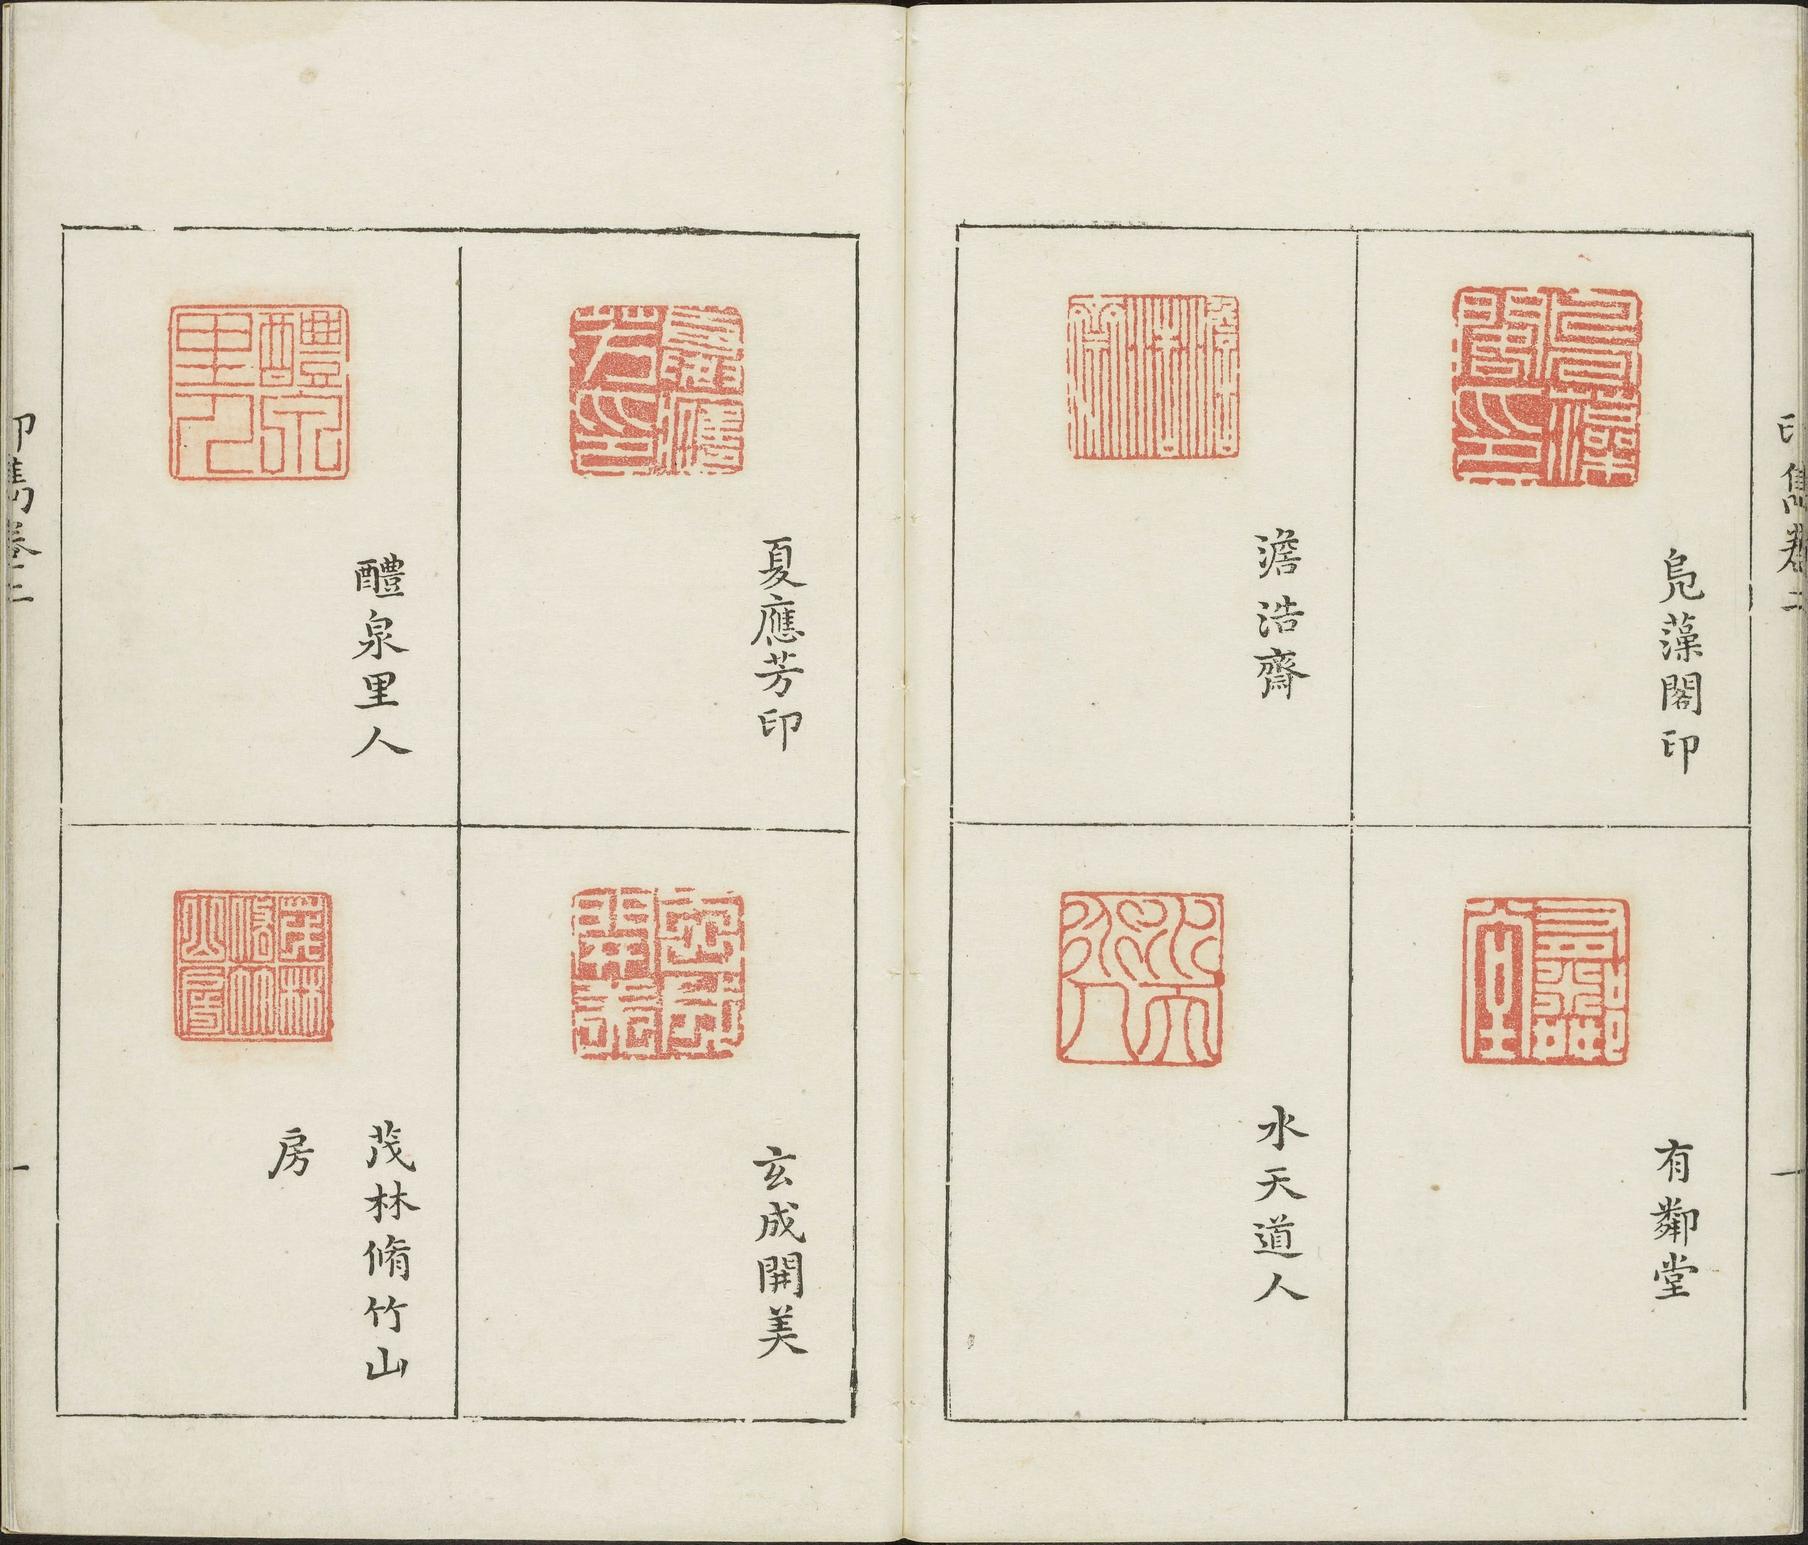 印雋卷二
一
鳧藻閣印
有鄰堂
澹浩齋
水天道人
夏應芳印
玄成開美
醴泉里人
茂林脩竹山
房
印雋卷二
一